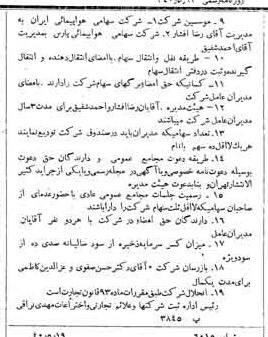 ۹ - موسسین شرکت ۱- شرکت سهامی هواپیمائی ایران به
مدیریت آقای رضا افشار ۲. شرکت سهامی هواپیمائی پارس بمدیریت
آقای احمد شفیق
۱۰ - طریقه نقل وانتقال سهام . باامضای انتقال دهنده و انتقال
گیرنده وثبت دردفتر انتقال سهام
۱۱ - کسانیکه حق امضاء برگهای سهام شرکت رادارند . بامضای
مدیران عامل شرکت
۱۲ - هیئت مدیره . آقایان رضا افشار واحمد شفیق برای مدت ۳ سال
مدیران عامل شرکت میباشند
۱۳ - تعداد سهامیکه مدیران باید درصندوق شرکت تودیع نمایند
هریک لااقل ده سهم بانام
۱۴ - طریقه دعوت مجامع عمومی و دارندگان حق دعوت
بوسیله دعوت نامه خصوصی و یا آگهی در مجله رسمی و یا یکی از جراید کثیر
الانتشار تهران و بنا بدعوت هیئت مدیره
۱۵ - رسمیت جلسات مجامع عمومی عادی با حضور عده ای از
صاحبان سهامیکه لااقل ثلث سهام شرکت را دارا باشند
۱۶ - دارندگان حق امضاء در شرکت با هر دو نفر آقایان
مدیران عامل
۱۷ - میزان کسر سرمایه ذخیره از سود سالیانه صدی ده از
سود ویژه
۱۸ - بازرسان شرکت ۰ آقای دکتر حسن صفوی و عزالدین کاظمی
برای مدت یکسال
۱۹ - انحلال شرکت طبق مقررات ماده ۹۳ قانون تجارت است
رئیس اداره ثبت شرکتها و علائم تجارتی و اختراعات مهدی نراقی
پ ۳۸۴۵